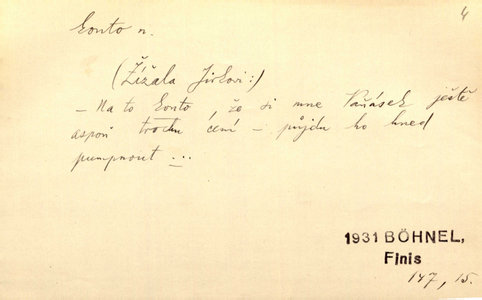 4
konto n.
(Žížala Jirkovi:)
– Na to konto, že si mne Vaňásek ještě
aspoň trochu cení – půjdu ho hned
pumpnout ...
1931 BÖHNEL,
Finis
147, 15.